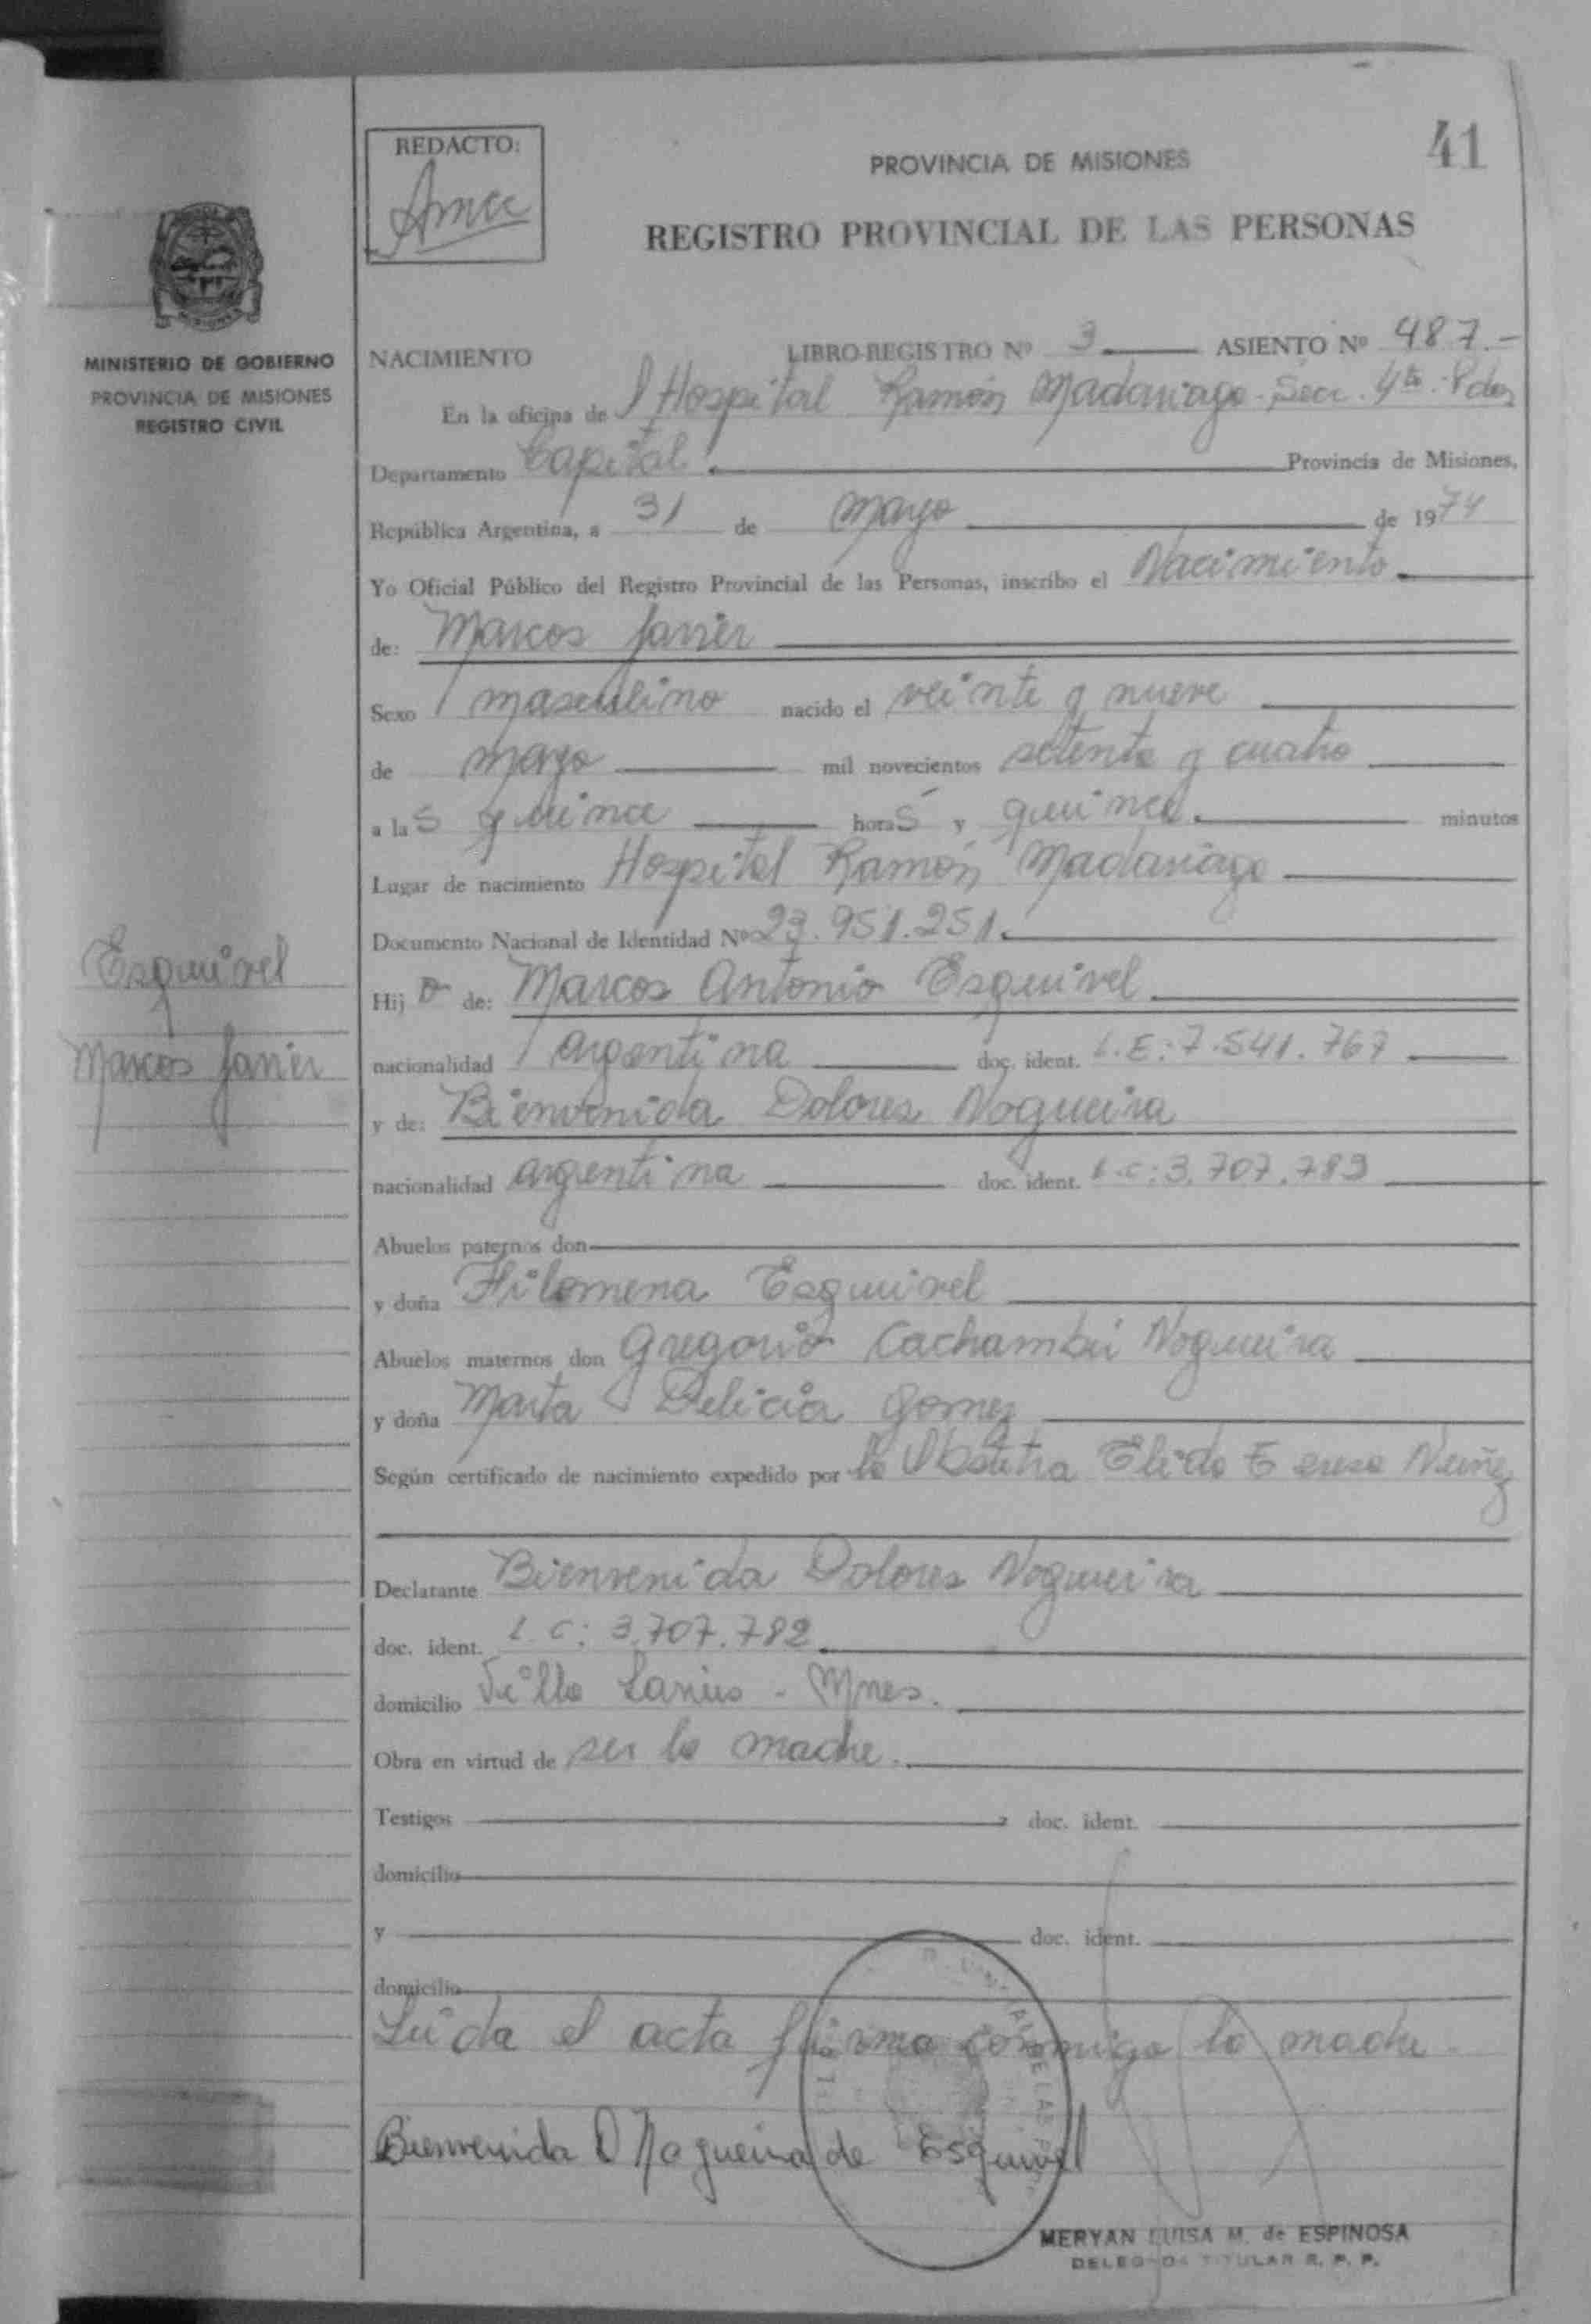 REDACTO:
PROVINCIA DE MISIONES
41
REGISTRO PROVINCIAL DE LAS PERSONAS
MINISTERIO DE GOBIERNO
PROVINCIA DE MISIONES
REGISTRO CIVIL
NACIMIENTO LIBRO-REGISTRO Nº 3 ASIENTO Nº 487.-
En la oficina de Hospital Ramón Madariaga - Secc. 4ta. Pdas
Departamento Capital. Provincia de Misiones,
República Argentina, a 31 de Mayo de 1974
Yo Oficial Público del Registro Provincial de las Personas, inscribo el Nacimiento
de: Marcos Javier
Sexo masculino nacido el veinte y nueve
de mayo mil novecientos setenta y cuatro
a las quince horas y quince. minutos
Lugar de nacimiento Hospital Ramón Madariaga
Documento Nacional de Identidad Nº 23.951.251.
Esquivel
Hijo de: Marcos Antonio Esquivel
Marcos Javier
nacionalidad argentina doc. ident. L.E: 7.541.767
y de: Bienvenida Dolores Nogueira
nacionalidad argentina doc. ident. L.C: 3.707.789
Abuelos paternos don
y doña Filomena Esquivel
Abuelos maternos don Gregorio Cachambú Nogueira
y doña Marta Delicia Gomez
Según certificado de nacimiento expedido por la Obstetra Elida Nuñez
Declarante Bienvenida Dolores Nogueira
doc. ident. L.C: 3.707.782
domicilio Villa Lanús - Mnes.
Obra en virtud de ser la madre.
Testigos doc. ident.
domicilio
y doc. ident.
domicilio
Leída el acta firma conmigo la madre.
Bienvenida D Nogueira de Esquivel
MERYAN LUISA M. de ESPINOSA
DELEGADA TITULAR R. P. P.